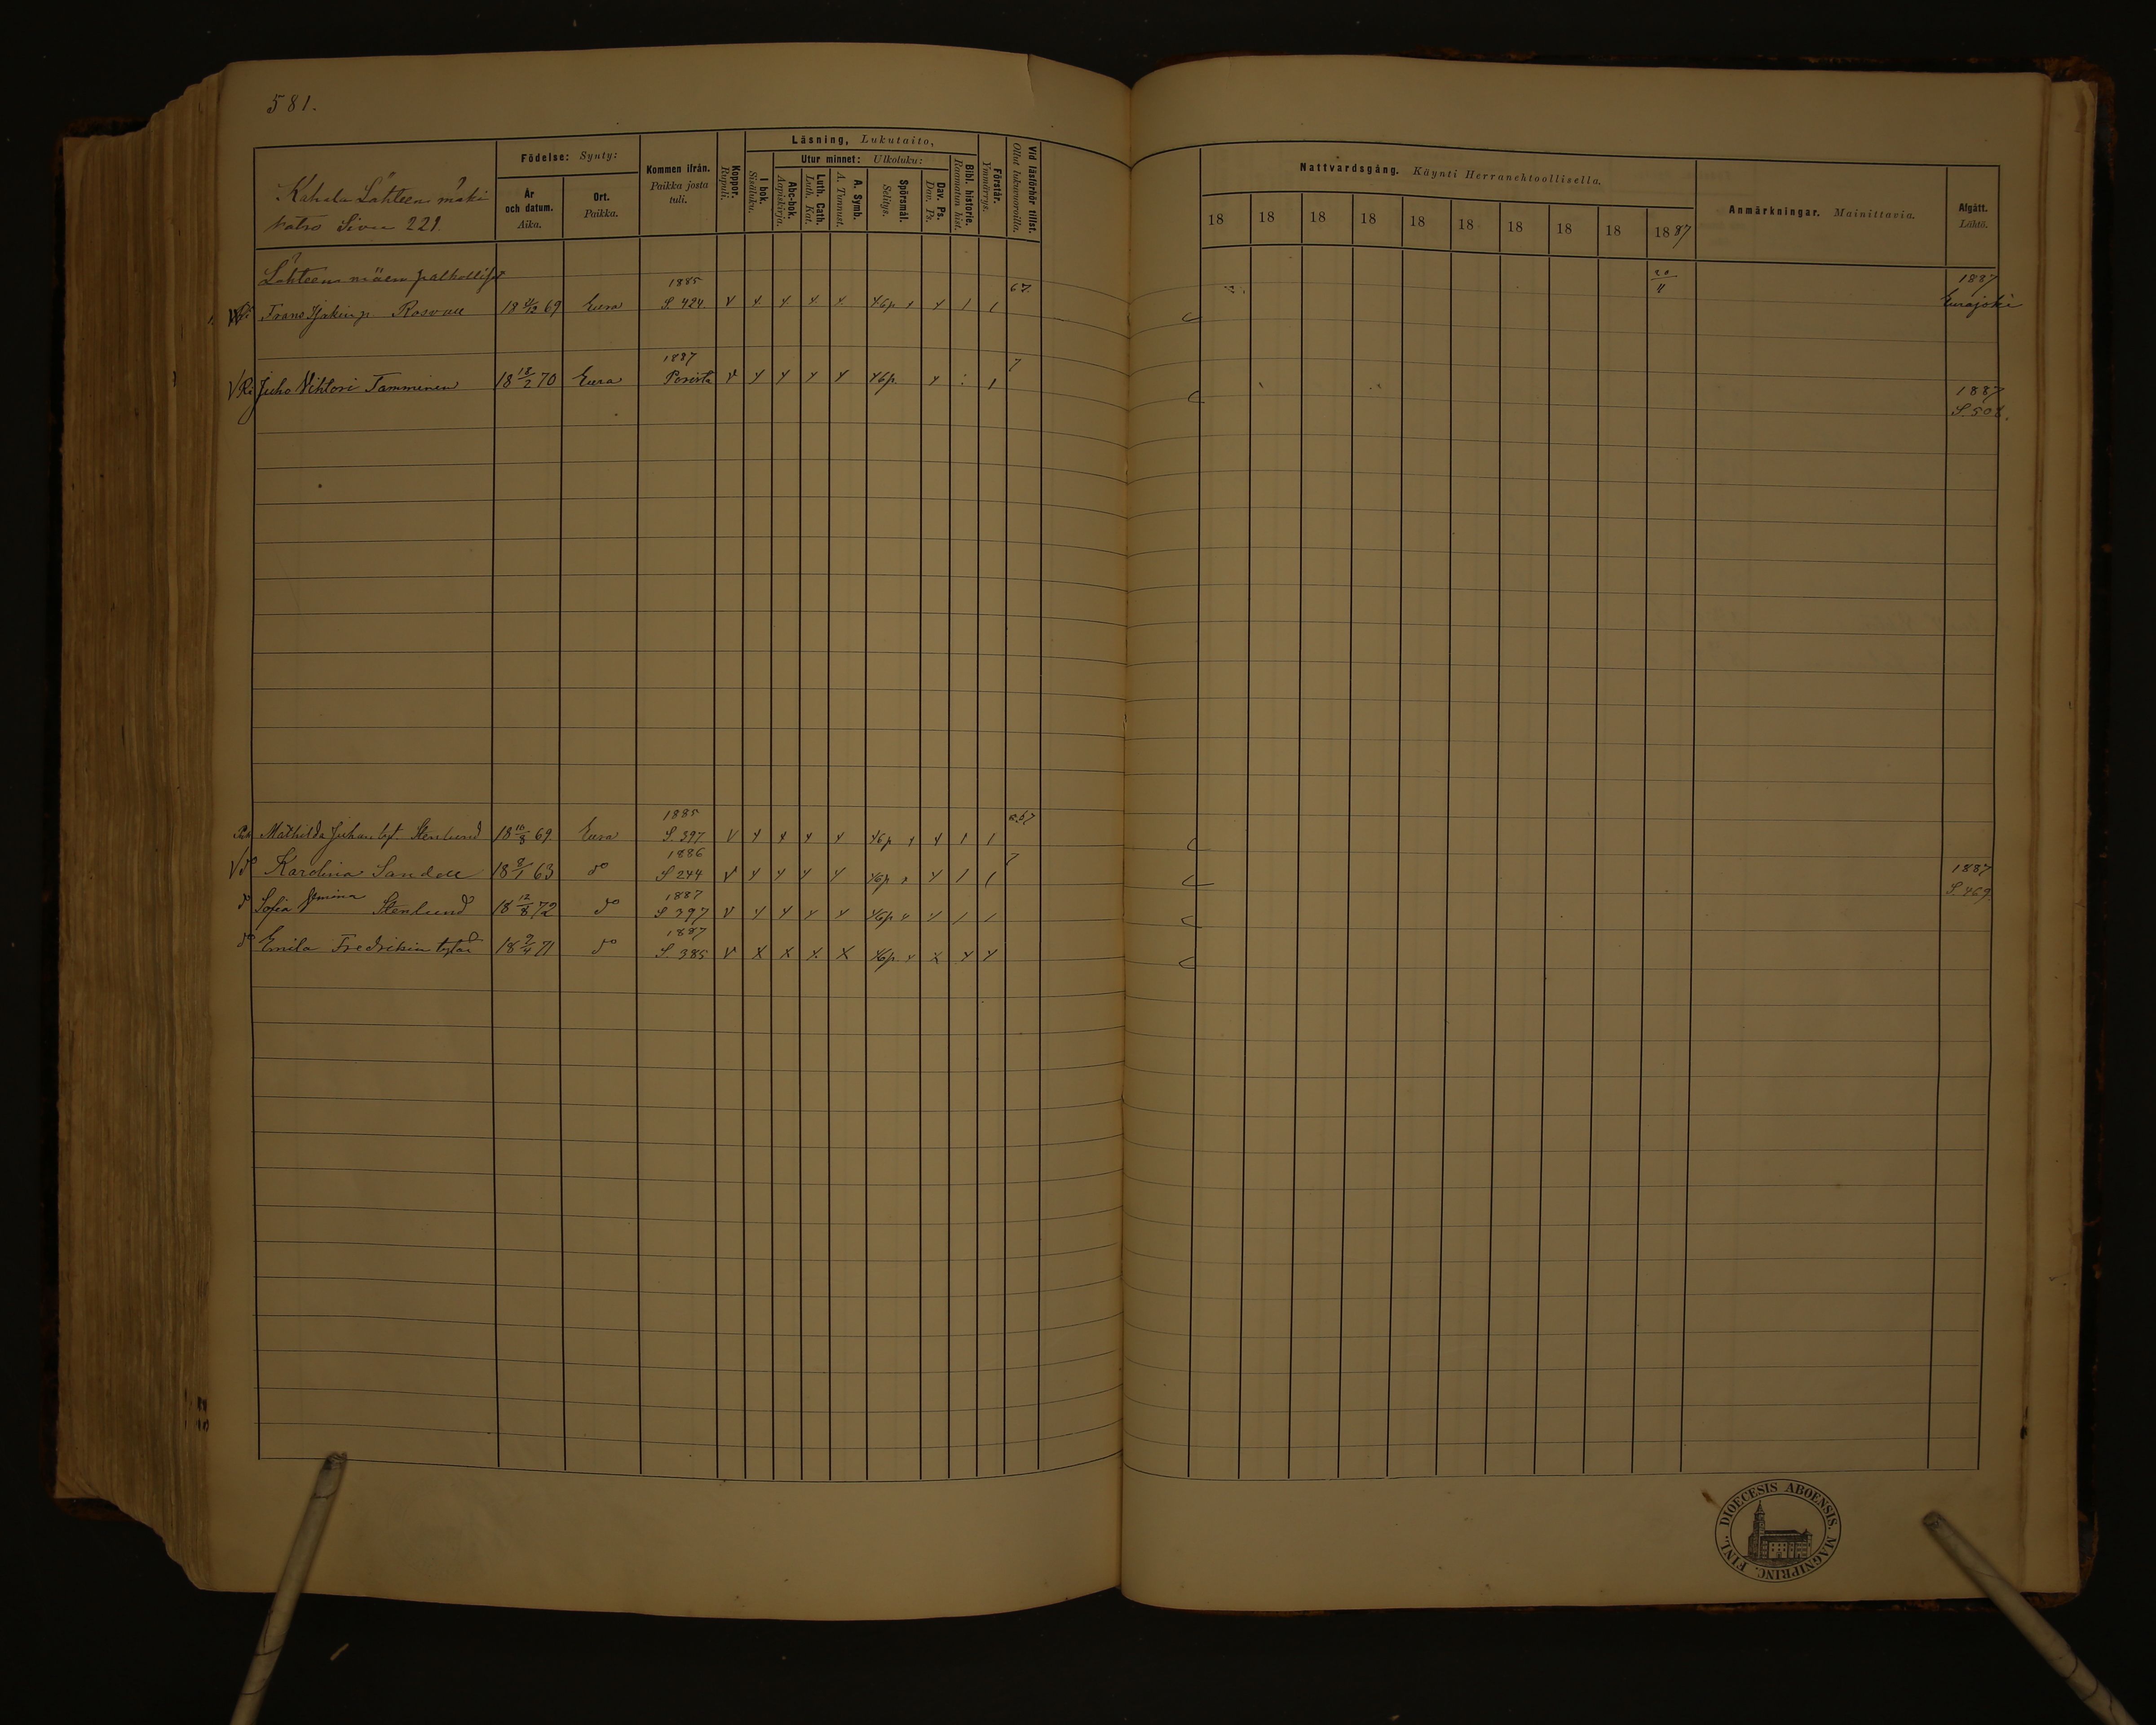 581.
Kahala Lähteenmäki
katso Sivu 221.
Födelse: Synty:
År och datum. Aika.
Ort. Paikka.
Kommen ifrån. Paikka josta tuli.
Koppor. Rupuli.
Läsning, Lukutaito,
I bok. Sisäluku.
Utur minnet: Ulkoluku:
Abc-bok. Aapiskirja.
Luth. Cath. Luth. Kat.
A. Symb. A. Tunnust.
Spörsmål. Selitys.
Dav. Ps. Dav. Ps.
Bibl. historie. Raamatun hist.
Förstår. Ymmärrys.
Vid läsförhör tillst. Ollut lukuvuoroilla.
Nattvardsgång. Käynti Herranehtoollisella.
18 18 18 18 18 18 18 18 18 1887
Anmärkningar. Mainittavia.
Afgått. Lähtö.
Lähteenmäen palkolliset
1885 67. 20/11 1887
Frans Hjalm. p. Rosvall 69 Eura S. 424. Eurajoki
1887 7
Ri Juho Vihtori Tamminen 18 18/2 70 Eura Porista 1887
S. 508.
1885
Mathilda Juhan tyt. Stenlund 18 10/3 69 Eura S. 397
1886 7
do Karolina Sandell 18 2/1 63 do S 244 1887
S. 469.
1887
do Sofia Stenlund 18 12/8 72 do S 397
1887
do Emila Fredrikin tytär 18 9/4 71 do S. 385
DIOECESIS ABOENSIS. MAGNIPRINC. FINL.